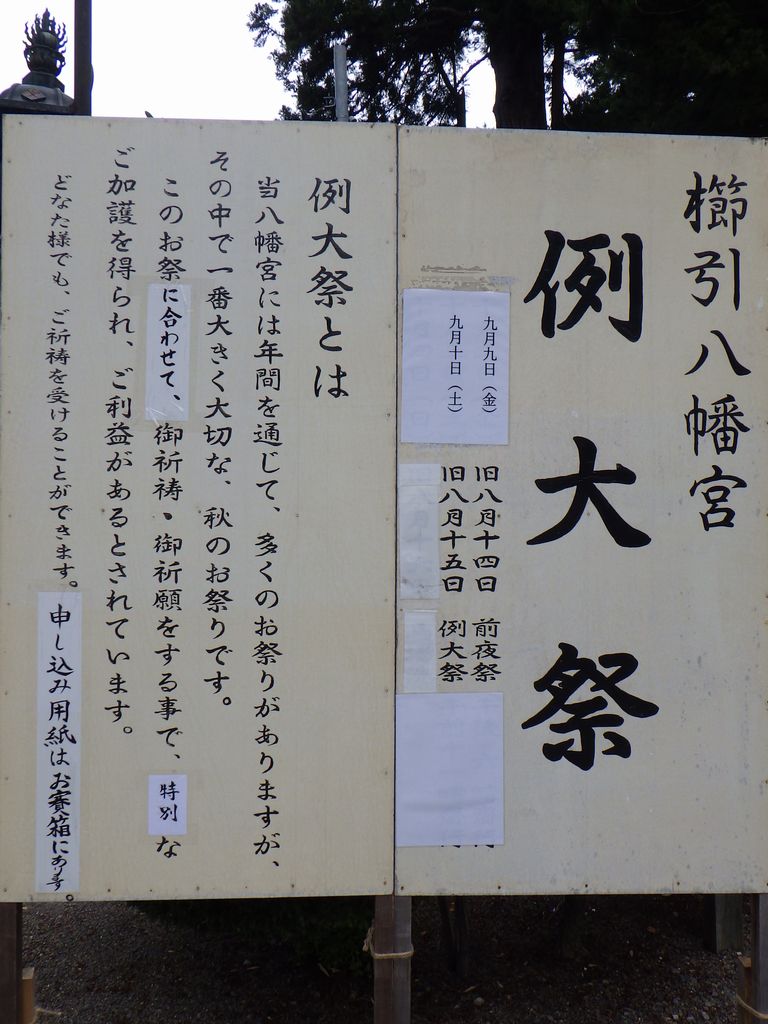 櫛引八幡宮
例大祭
九月九日(金)
九月十日(土)
旧八月十四日 前夜祭
旧八月十五日 例大祭
例大祭とは
当八幡宮には年間を通じて、多くのお祭りがありますが、
その中で一番大きく大切な、秋のお祭りです。
このお祭に合わせて、御祈祷・御祈願をする事で、特別な
ご加護を得られ、ご利益があるとされています。
どなた様でも、ご祈祷を受けることができます。申し込み用紙はお賽箱にあります。